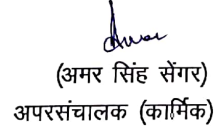 (अमर सिंह सेंगर)
अपरसंचालक (कार्मिक)